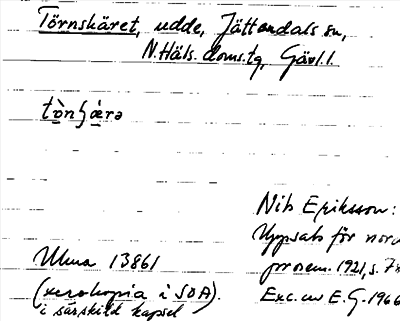 Törnskäret, udde, Jättendals sn,
N. Häls. doms.tg, Gävl. l.
Nils Eriksson:
Uppsats för nord
Ulma 13861
prosem. 1921, s. 7
(xerokopia i SOA).
Exc. av E. G. 1966
i särskild kapsel